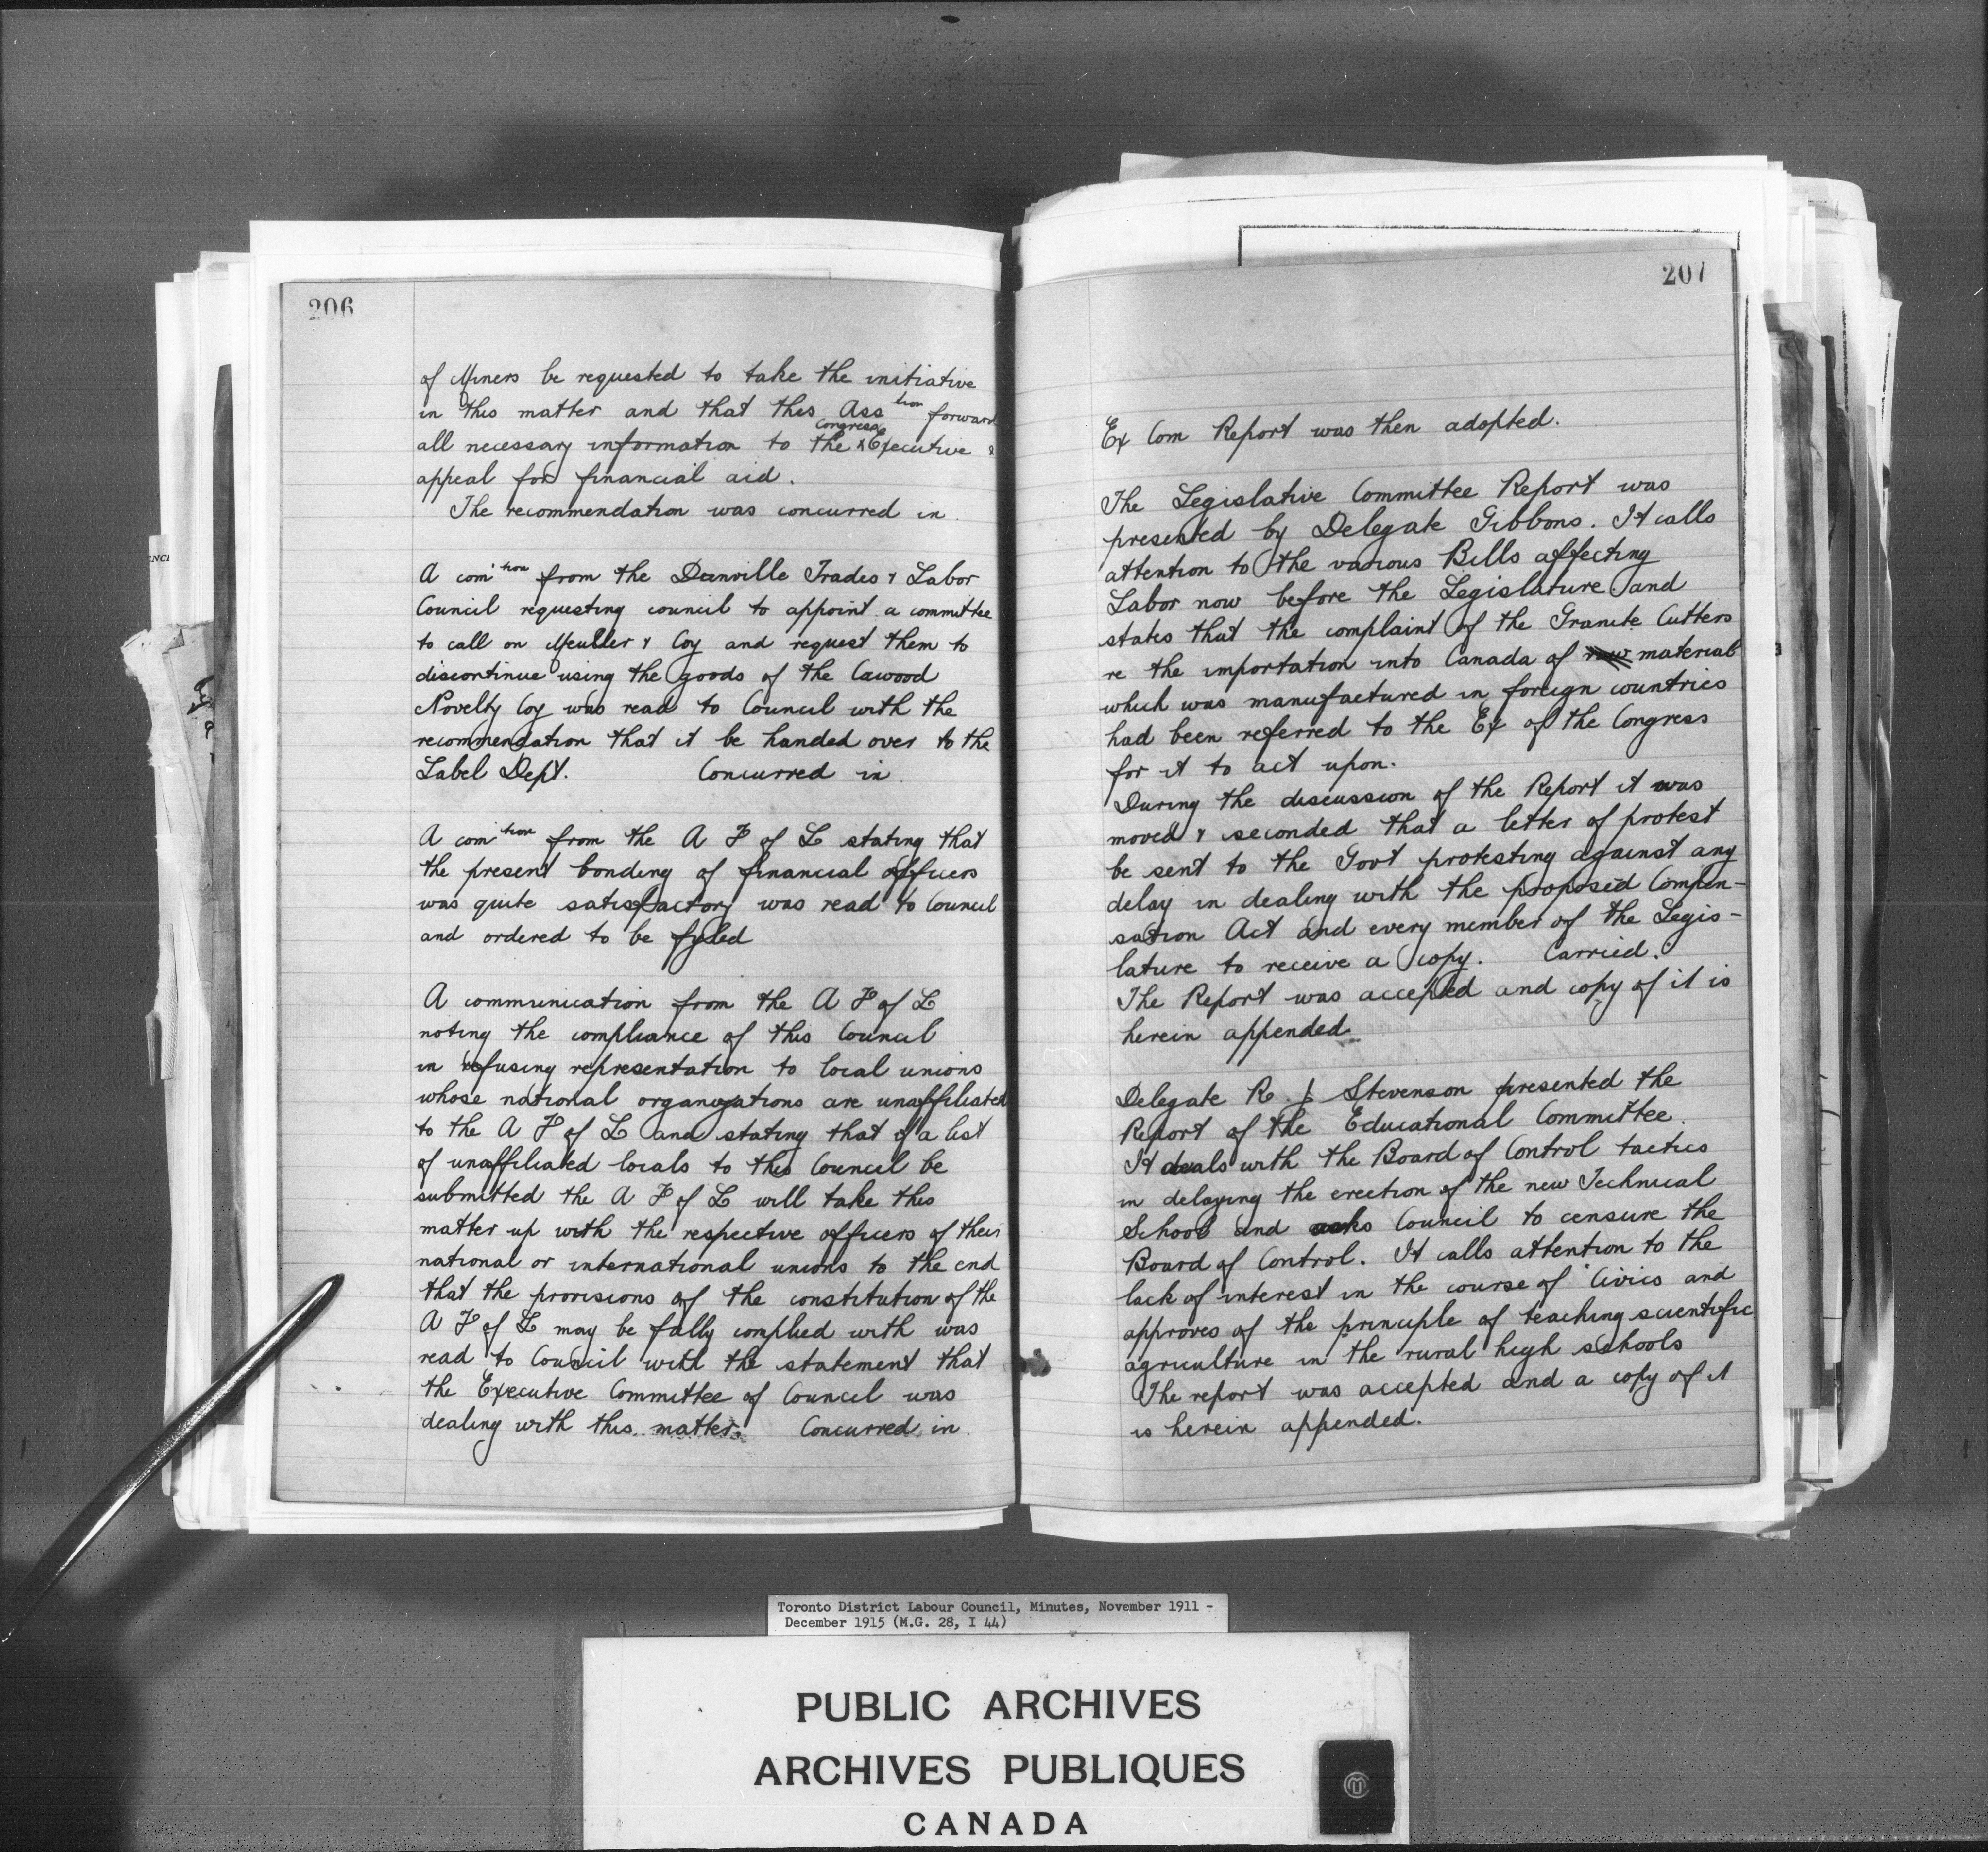 206
of Miners be requested to take the initiative
in this matter and that this Ass tion forward
Congress
all necessary information to the x Executive &
appeal for financial aid.
The recommendation was concurred in.
A com'tion from the Danville Trades & Labor
Council requesting council to appoint a committee
to call on Meuller & Coy and request them to
discontinue using the goods of the Cawood
Novelty Coy was read to Council with the
recommendation that it be handed over to the
Label Dept. Concurred in
A com'tion from the A F of L stating that
the present bonding of financial officers
was quite satisfactory was read to Council
and ordered to be fyled
A communication from the A F of L
noting the compliance of this Council
in refusing representation to local unions
whose national organizations are unaffiliated
to the A F of L and stating that if a list
of unaffiliated locals to this Council be
submitted the A F of L will take this
matter up with the respective officers of their
national or international unions to the end
that the provisions of the constitution of the
A F of L may be fully complied with was
read to Council with the statement that
the Executive Committee of Council was
dealing with this matter. Concurred in.
207
Ex Com Report was then adopted.
The Legislative Committee Report was
presented by Delegate Gibbons. It calls
attention to the various Bills affecting
Labor now before the Legislature and
states that the complaint of the Granite Cutters
re the importation into Canada of raw material
which was manufactured in foreign countries
had been referred to the Ex of the Congress
for it to act upon.
During the discussion of the Report it was
moved & seconded that a letter of protest
be sent to the Govt protesting against any
delay in dealing with the proposed Compen-
sation Act and every member of the Legis-
lature to receive a copy. Carried.
The Report was accepted and copy of it is
herein appended.
Delegate R. J Stevenson presented the
Report of the Educational Committee.
It deals with the Board of Control tactics
in delaying the erection of the new Technical
School and asks Council to censure the
Board of Control. It calls attention to the
lack of interest in the course of Civics and
approves of the principle of teaching scientific
agriculture in the rural high schools
The report was accepted and a copy of it
is herein appended.
Toronto District Labour Council, Minutes, November 1911 -
December 1915 (M.G. 28, I 44)
PUBLIC ARCHIVES
ARCHIVES PUBLIQUES
CANADA